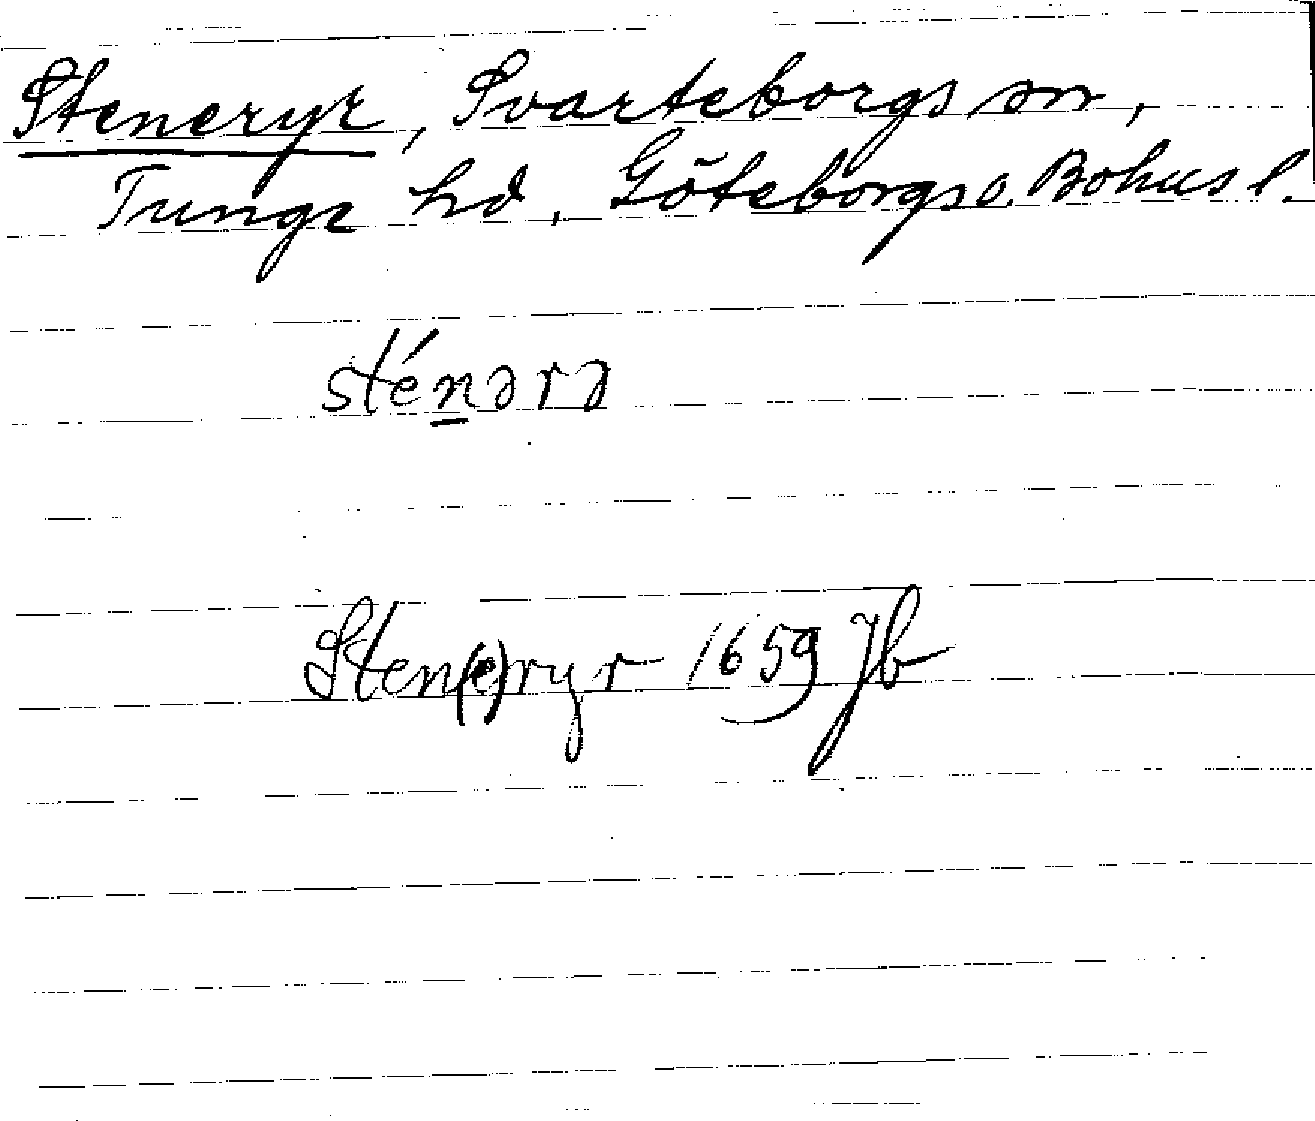 Steneryr, Svarteborgs sn,
Tunge hd, Göteborgs o. Bohus l.
sténərə
Sten(e)ryr 1659 Jb